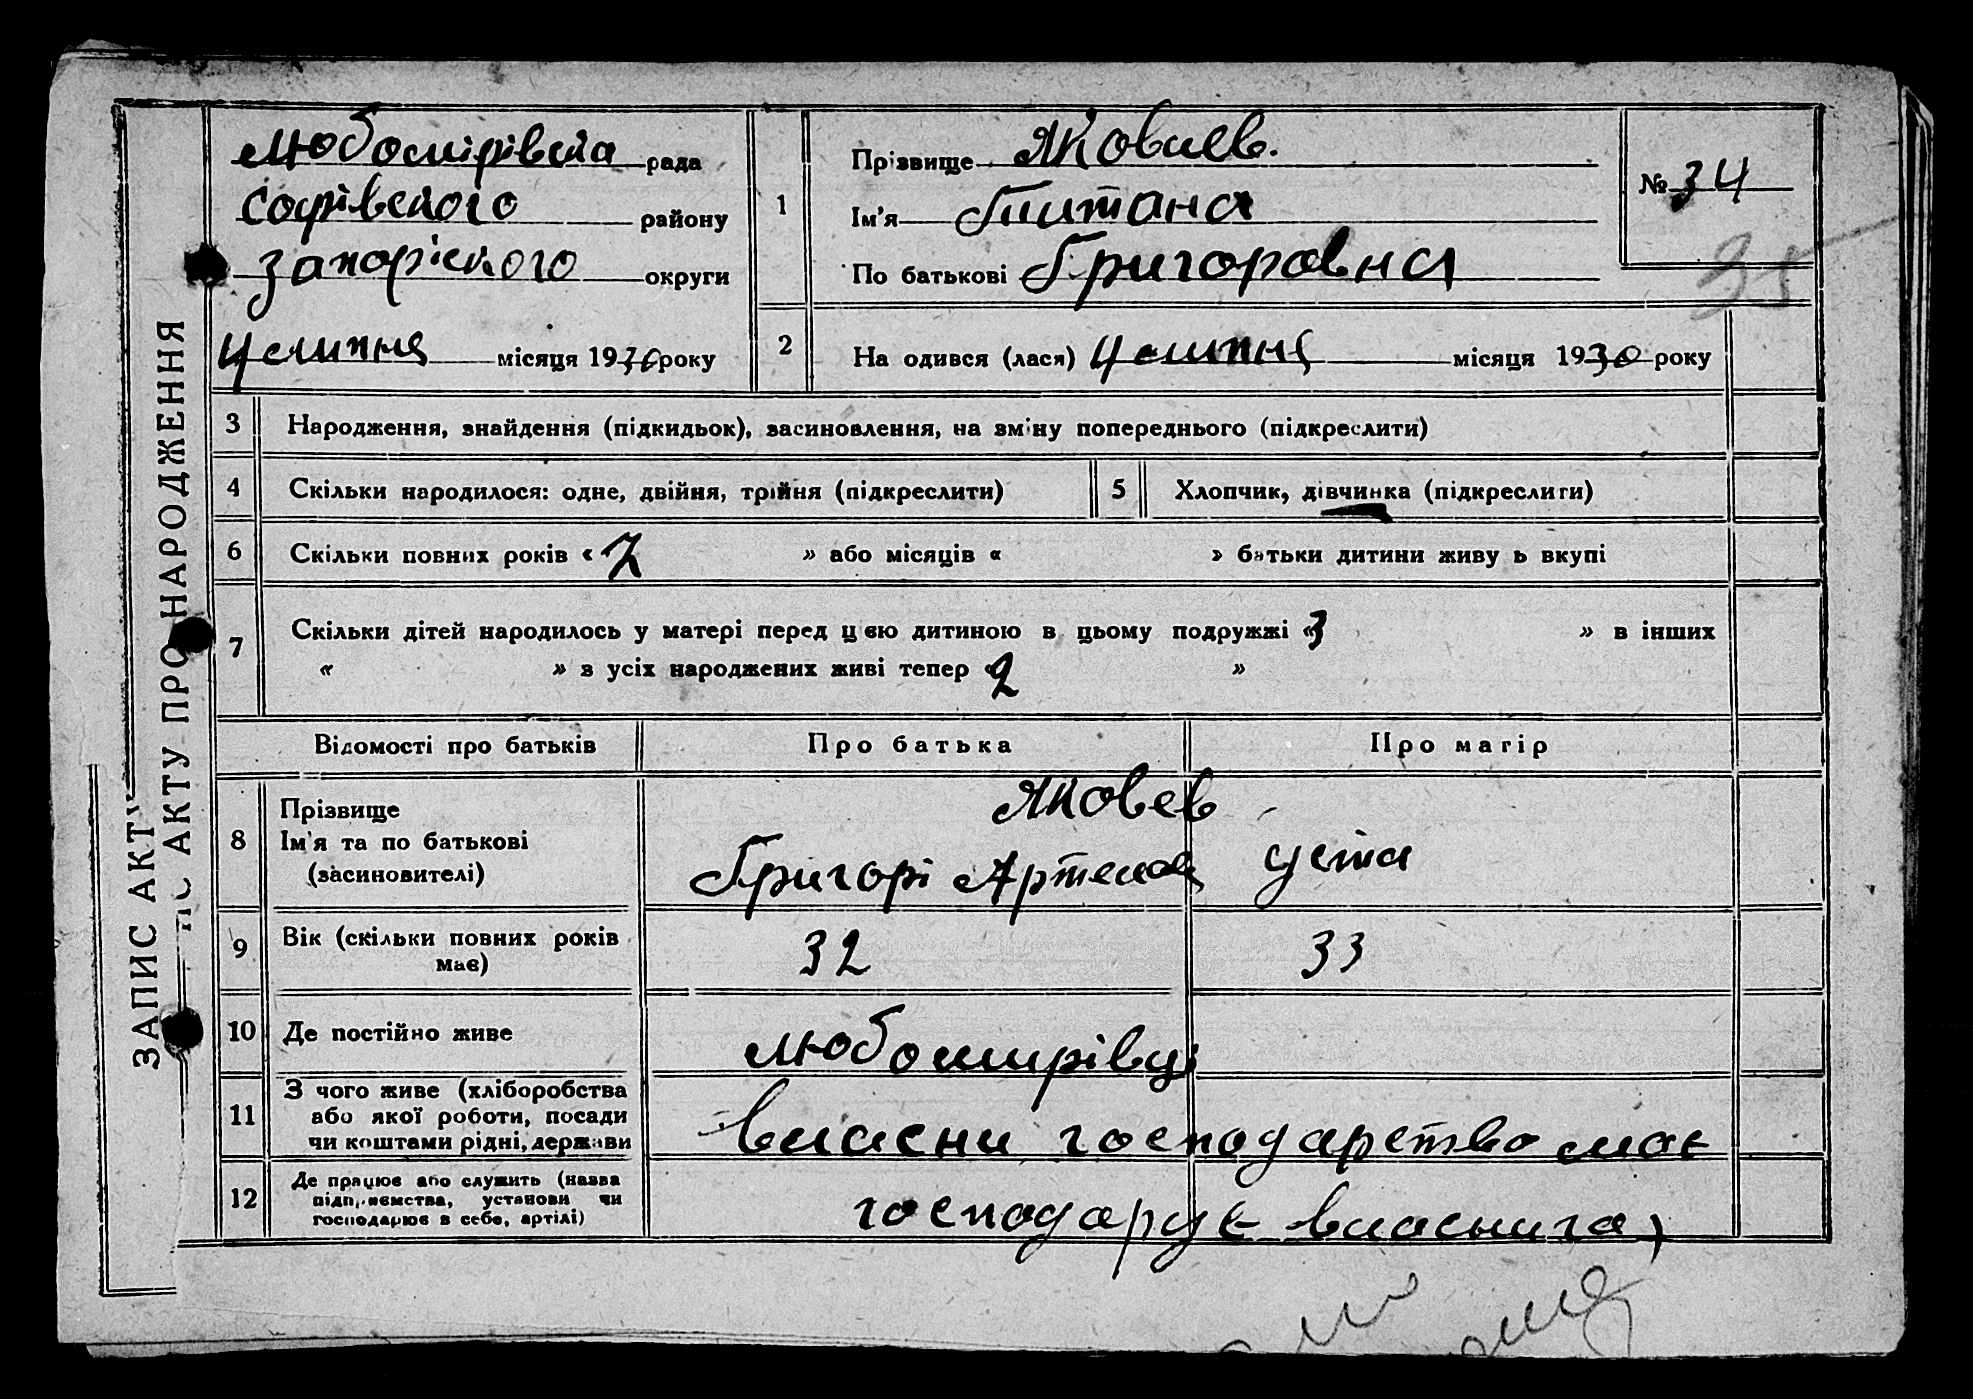 ЗАПИС АКТУ
ПРО НАРОДЖЕННЯ
Любомірівска рада
Софіївского району
Запоріского округи
4 липня місяця 1930 року
1
Прізвище Яковлев.
Ім'я Титана
По батькові Григоровна
№ 34
35
2
На одився (лася) 4 липня місяця 1930 року
3 Народження, знайдення (підкидьок), засиновлення, на зміну попереднього (підкреслити)
4 Скільки народилося: одне, двійня, трійня (підкреслити)
5 Хлопчик, дівчинка (підкреслити)
6 Скільки повних років « 7 » або місяців « » батьки дитини живу ь вкупі
7 Скільки дітей народилось у матері перед цією дитиною в цьому подружжі « 3 » в інших
« » з усіх народжених живі тепер « 2 »
Відомості про батьків Про батька Про матір
8 Прізвище
Ім'я та по батькові
(засиновителі)
Яковев
Григорі Артемов уста
9 Вік (скільки повних років
має)
32 33
10 Де постійно живе Любомирівці
11 З чого живе (хліборобства
або якої роботи, посади
чи коштами рідні, держави
власни господарство має
12 Де працює або служить (назва
підприємства, установи чи
господарює в себе, артілі)
господарує власнига)